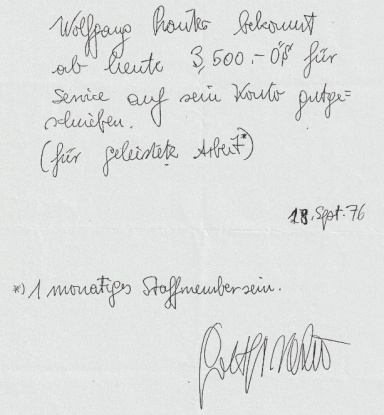 Wolfgang bekommt
ab heute 3,500.- öS für
Service auf sein Konto gutge=
schrieben.
(für geleistete Arbeit*)
18. Sept. 76
*) 1 monatiges Staffmembersein.